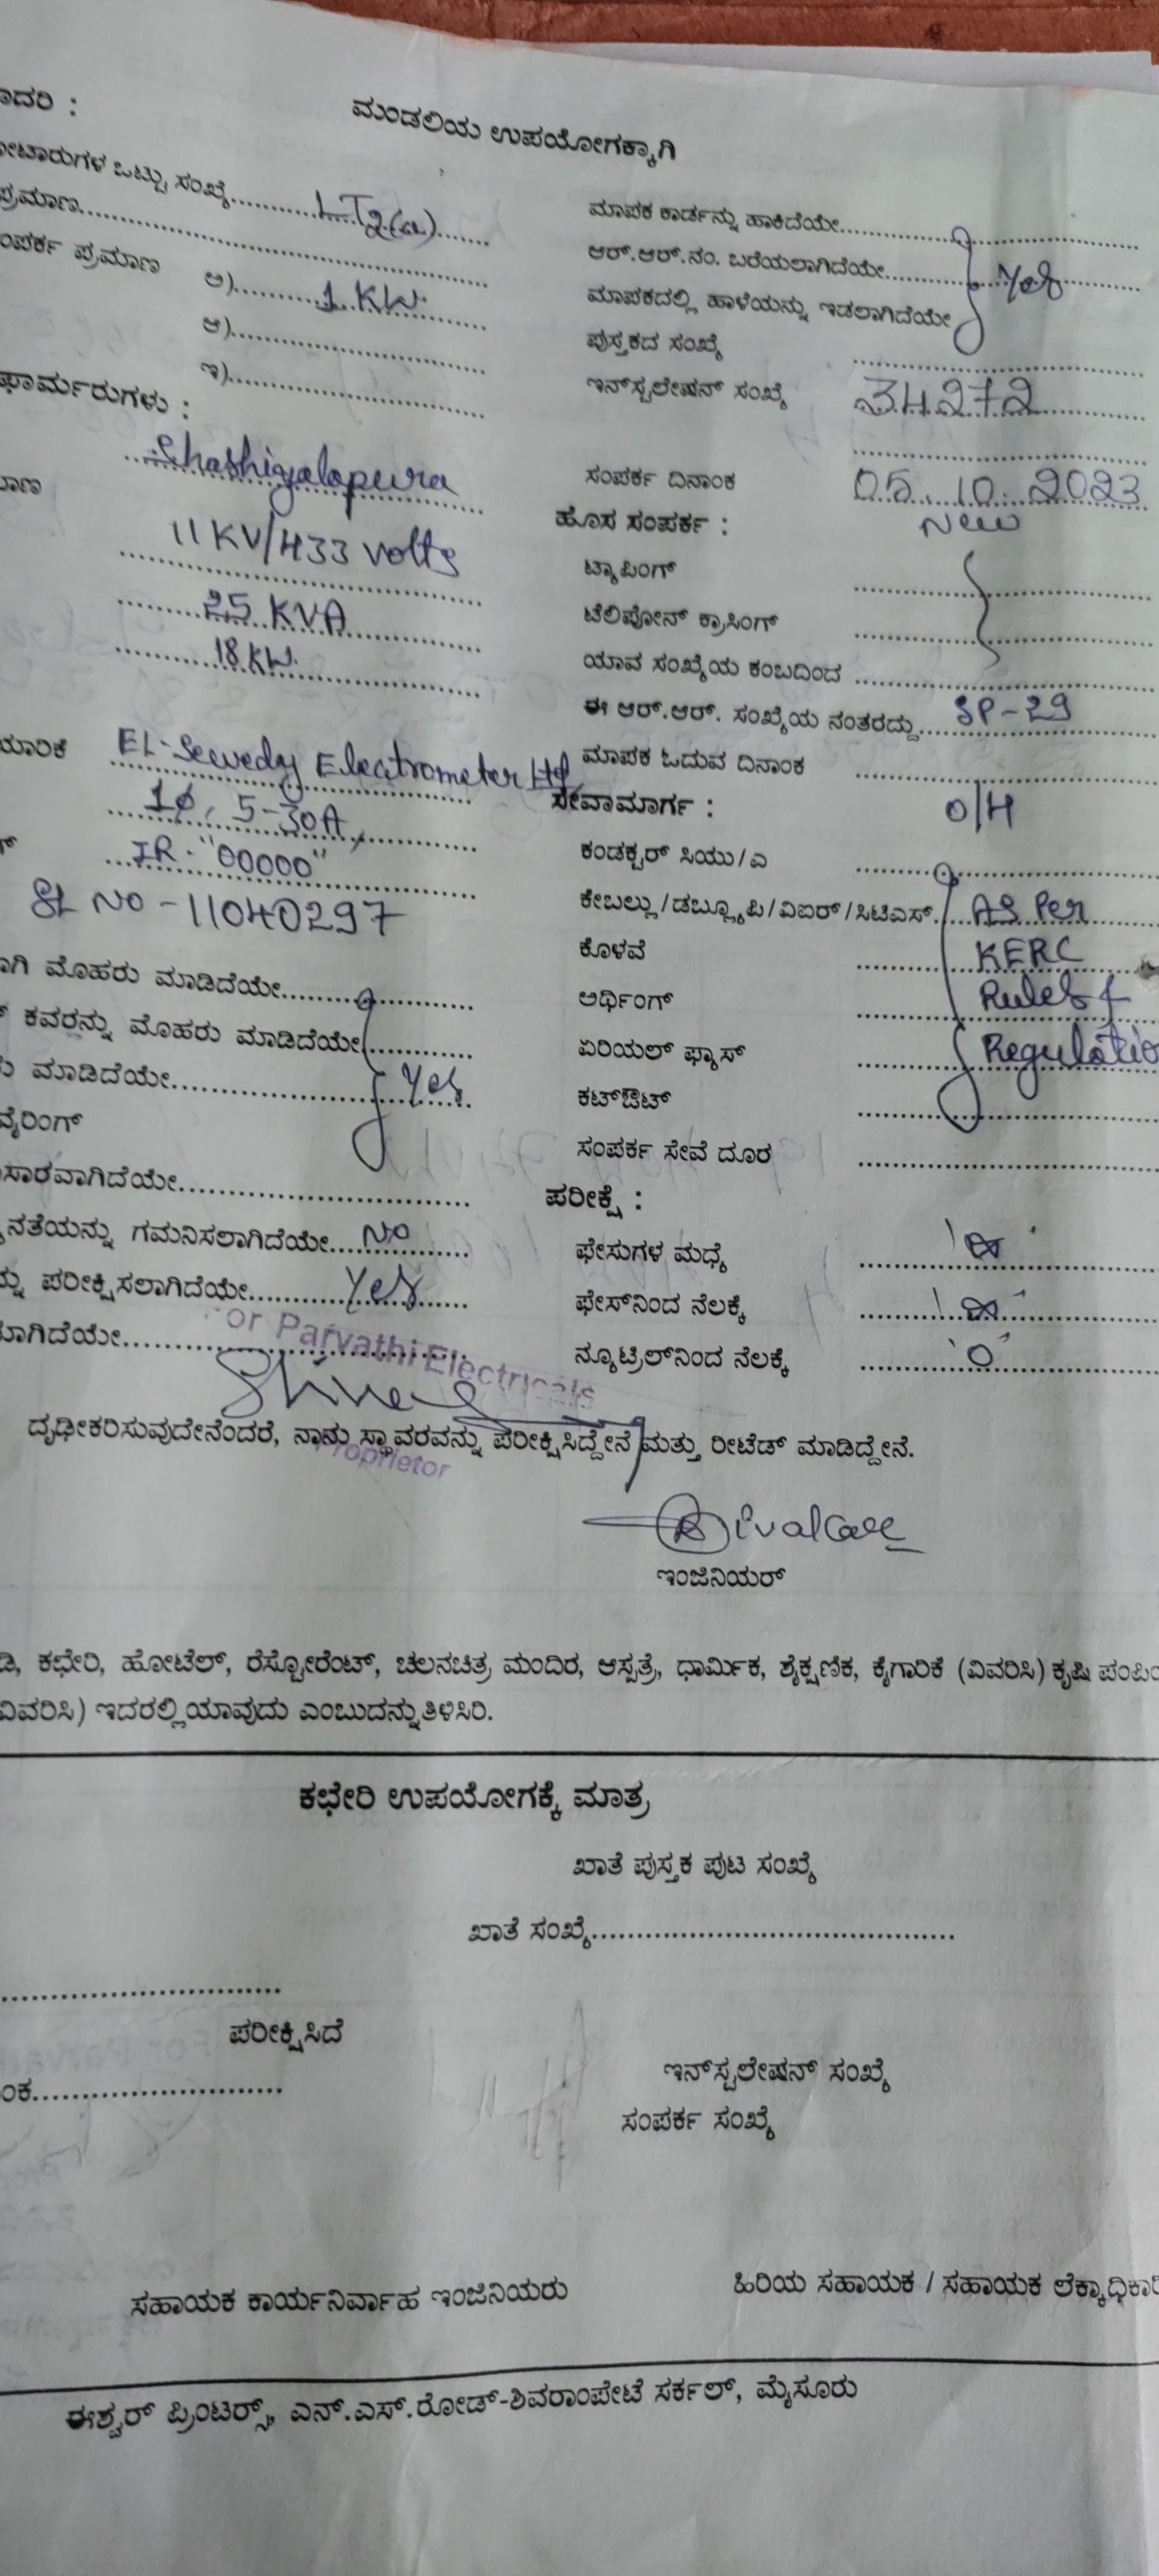 ಮಂಡಲಿಯ ಉಪಯೋಗಕ್ಕಾಗಿ
ಾದರಿ :
ೋಟಾರುಗಳ ಒಟ್ಟು ಸಂಖ್ಯೆ............LT2(a).......
ಪ್ರಮಾಣ.............................
ಂಪರ್ಕ ಪ್ರಮಾಣ ಅ)..........1 KW........
ಆ).............................
ಇ).............................
ಫಾರ್ಮರುಗಳು :
Shashiyalapura
ಮಾಣ
11 KV/433 volts
25 KVA
18 KW.
ಯಾರಿಕೆ EL-Sewedy Electrometer Ltd
1ø, 5-30A,
IR-"00000"
SL NO - 11040297
ಾಗಿ ಮೊಹರು ಮಾಡಿದೆಯೇ.....................
ಕವರನ್ನು ಮೊಹರು ಮಾಡಿದೆಯೇ.............
ು ಮಾಡಿದೆಯೇ.....................Yes
ವೈರಿಂಗ್
ಸಾರವಾಗಿದೆಯೇ.............................
ನತೆಯನ್ನು ಗಮನಿಸಲಾಗಿದೆಯೇ....No..........
ನು ಪರೀಕ್ಷಿಸಲಾಗಿದೆಯೇ............Yes.......
ಾಗಿದೆಯೇ.............................
ಮಾಪಕ ಕಾರ್ಡನ್ನು ಹಾಕಿದೆಯೇ.............................
ಆರ್.ಆರ್.ನಂ. ಬರೆಯಲಾಗಿದೆಯೇ................Yes
ಮಾಪಕದಲ್ಲಿ ಹಾಳೆಯನ್ನು ಇಡಲಾಗಿದೆಯೇ
ಪುಸ್ತಕದ ಸಂಖ್ಯೆ .............................
ಇನ್‌ಸ್ಟಲೇಷನ್ ಸಂಖ್ಯೆ 34272
ಸಂಪರ್ಕ ದಿನಾಂಕ 05.10.2023
ಹೊಸ ಸಂಪರ್ಕ : New
ಟ್ಯಾಪಿಂಗ್ .............................
ಟೆಲಿಪೋನ್ ಕ್ರಾಸಿಂಗ್ .............................
ಯಾವ ಸಂಖ್ಯೆಯ ಕಂಬದಿಂದ .............................
ಈ ಆರ್.ಆರ್. ಸಂಖ್ಯೆಯ ನಂತರದ್ದು.....SP-29
ಮಾಪಕ ಓದುವ ದಿನಾಂಕ .............................
ಸೇವಾಮಾರ್ಗ : O/H
ಕಂಡಕ್ಟರ್ ಸಿಯು/ಎ .............................
ಕೇಬಲ್ಲು/ಡಬ್ಲ್ಯೂಪಿ/ವಿಐರ್/ಸಿಟಿಎಸ್.....As Per
ಕೊಳವೆ KERC
ಅರ್ಥಿಂಗ್ Rules &
ಏರಿಯಲ್ ಫ್ಯೂಸ್ Regulatio
ಕಟ್‌ಔಟ್ .............................
ಸಂಪರ್ಕ ಸೇವೆ ದೂರ .............................
ಪರೀಕ್ಷೆ :
ಫೇಸುಗಳ ಮಧ್ಯೆ '∞'
ಫೇಸ್‌ನಿಂದ ನೆಲಕ್ಕೆ '∞'
ನ್ಯೂಟ್ರಲ್‌ನಿಂದ ನೆಲಕ್ಕೆ '0'
or Parvathi Electricals
roprietor
ದೃಢೀಕರಿಸುವುದೇನೆಂದರೆ, ನಾನು ಸ್ಥಾವರವನ್ನು ಪರೀಕ್ಷಿಸಿದ್ದೇನೆ ಮತ್ತು ರೀಟೆಡ್ ಮಾಡಿದ್ದೇನೆ.
ಇಂಜಿನಿಯರ್
ಡಿ, ಕಛೇರಿ, ಹೋಟೆಲ್, ರೆಸ್ಟೋರೆಂಟ್, ಚಲನಚಿತ್ರ ಮಂದಿರ, ಆಸ್ಪತ್ರೆ, ಧಾರ್ಮಿಕ, ಶೈಕ್ಷಣಿಕ, ಕೈಗಾರಿಕೆ (ವಿವರಿಸಿ) ಕೃಷಿ ಪಂಪಿಂ
ವಿವರಿಸಿ) ಇದರಲ್ಲಿ ಯಾವುದು ಎಂಬುದನ್ನು ತಿಳಿಸಿರಿ.
ಕಛೇರಿ ಉಪಯೋಗಕ್ಕೆ ಮಾತ್ರ
ಖಾತೆ ಪುಸ್ತಕ ಪುಟ ಸಂಖ್ಯೆ
ಖಾತೆ ಸಂಖ್ಯೆ........................................
ಪರೀಕ್ಷಿಸಿದೆ
ಂಕ.............................
ಇನ್‌ಸ್ಟಲೇಷನ್ ಸಂಖ್ಯೆ
ಸಂಪರ್ಕ ಸಂಖ್ಯೆ
ಸಹಾಯಕ ಕಾರ್ಯನಿರ್ವಾಹ ಇಂಜಿನಿಯರು
ಹಿರಿಯ ಸಹಾಯಕ / ಸಹಾಯಕ ಲೆಕ್ಕಾಧಿಕಾರಿ
ಈಶ್ವರ್ ಪ್ರಿಂಟರ್ಸ್, ಎನ್.ಎಸ್.ರೋಡ್-ಶಿವರಾಂಪೇಟೆ ಸರ್ಕಲ್, ಮೈಸೂರು